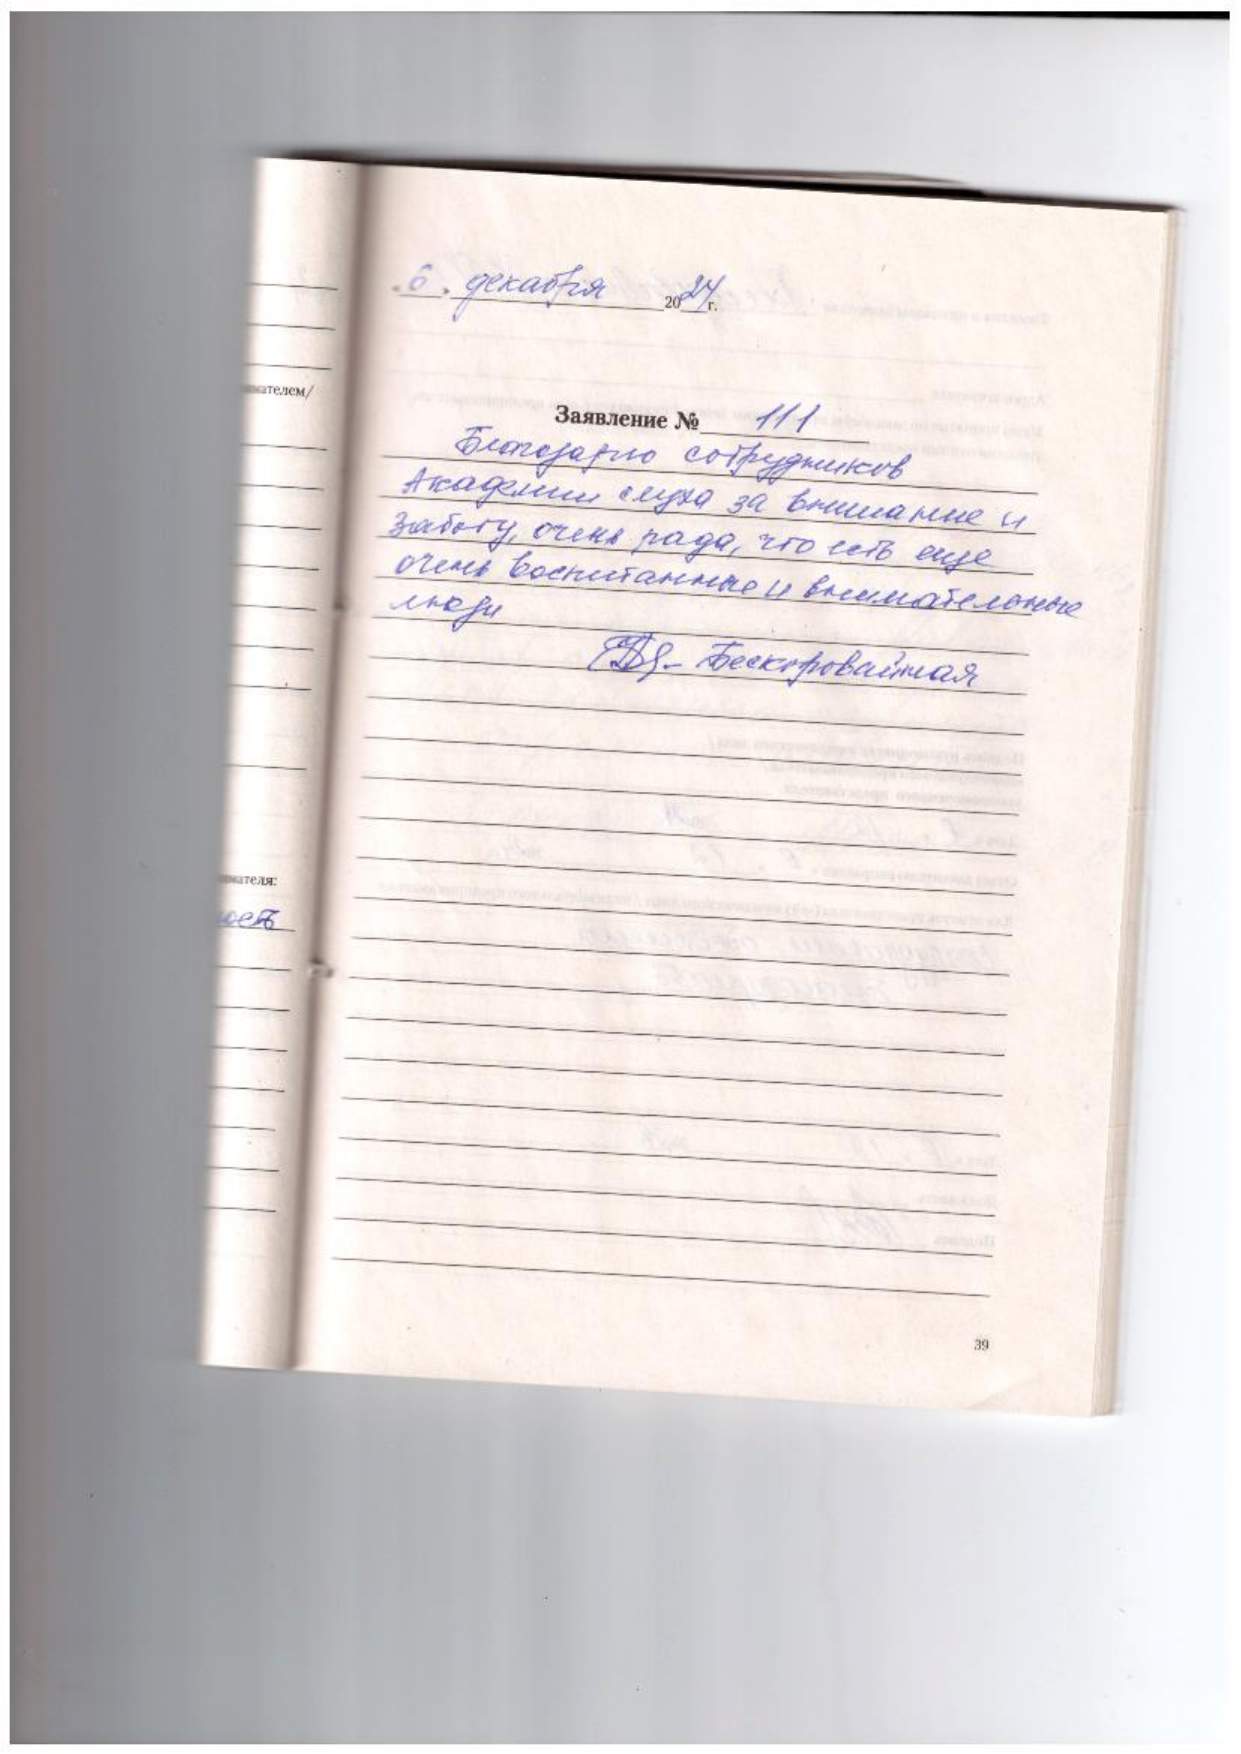 «6» декабря 2024 г.
Заявление № 111
Благодарю сотрудников
Академии слуха за внимание и
заботу, очень рада, что есть еще
очень воспитанные и внимательные
люди
Бескоровайная
мателем/
мателя:
ность
39